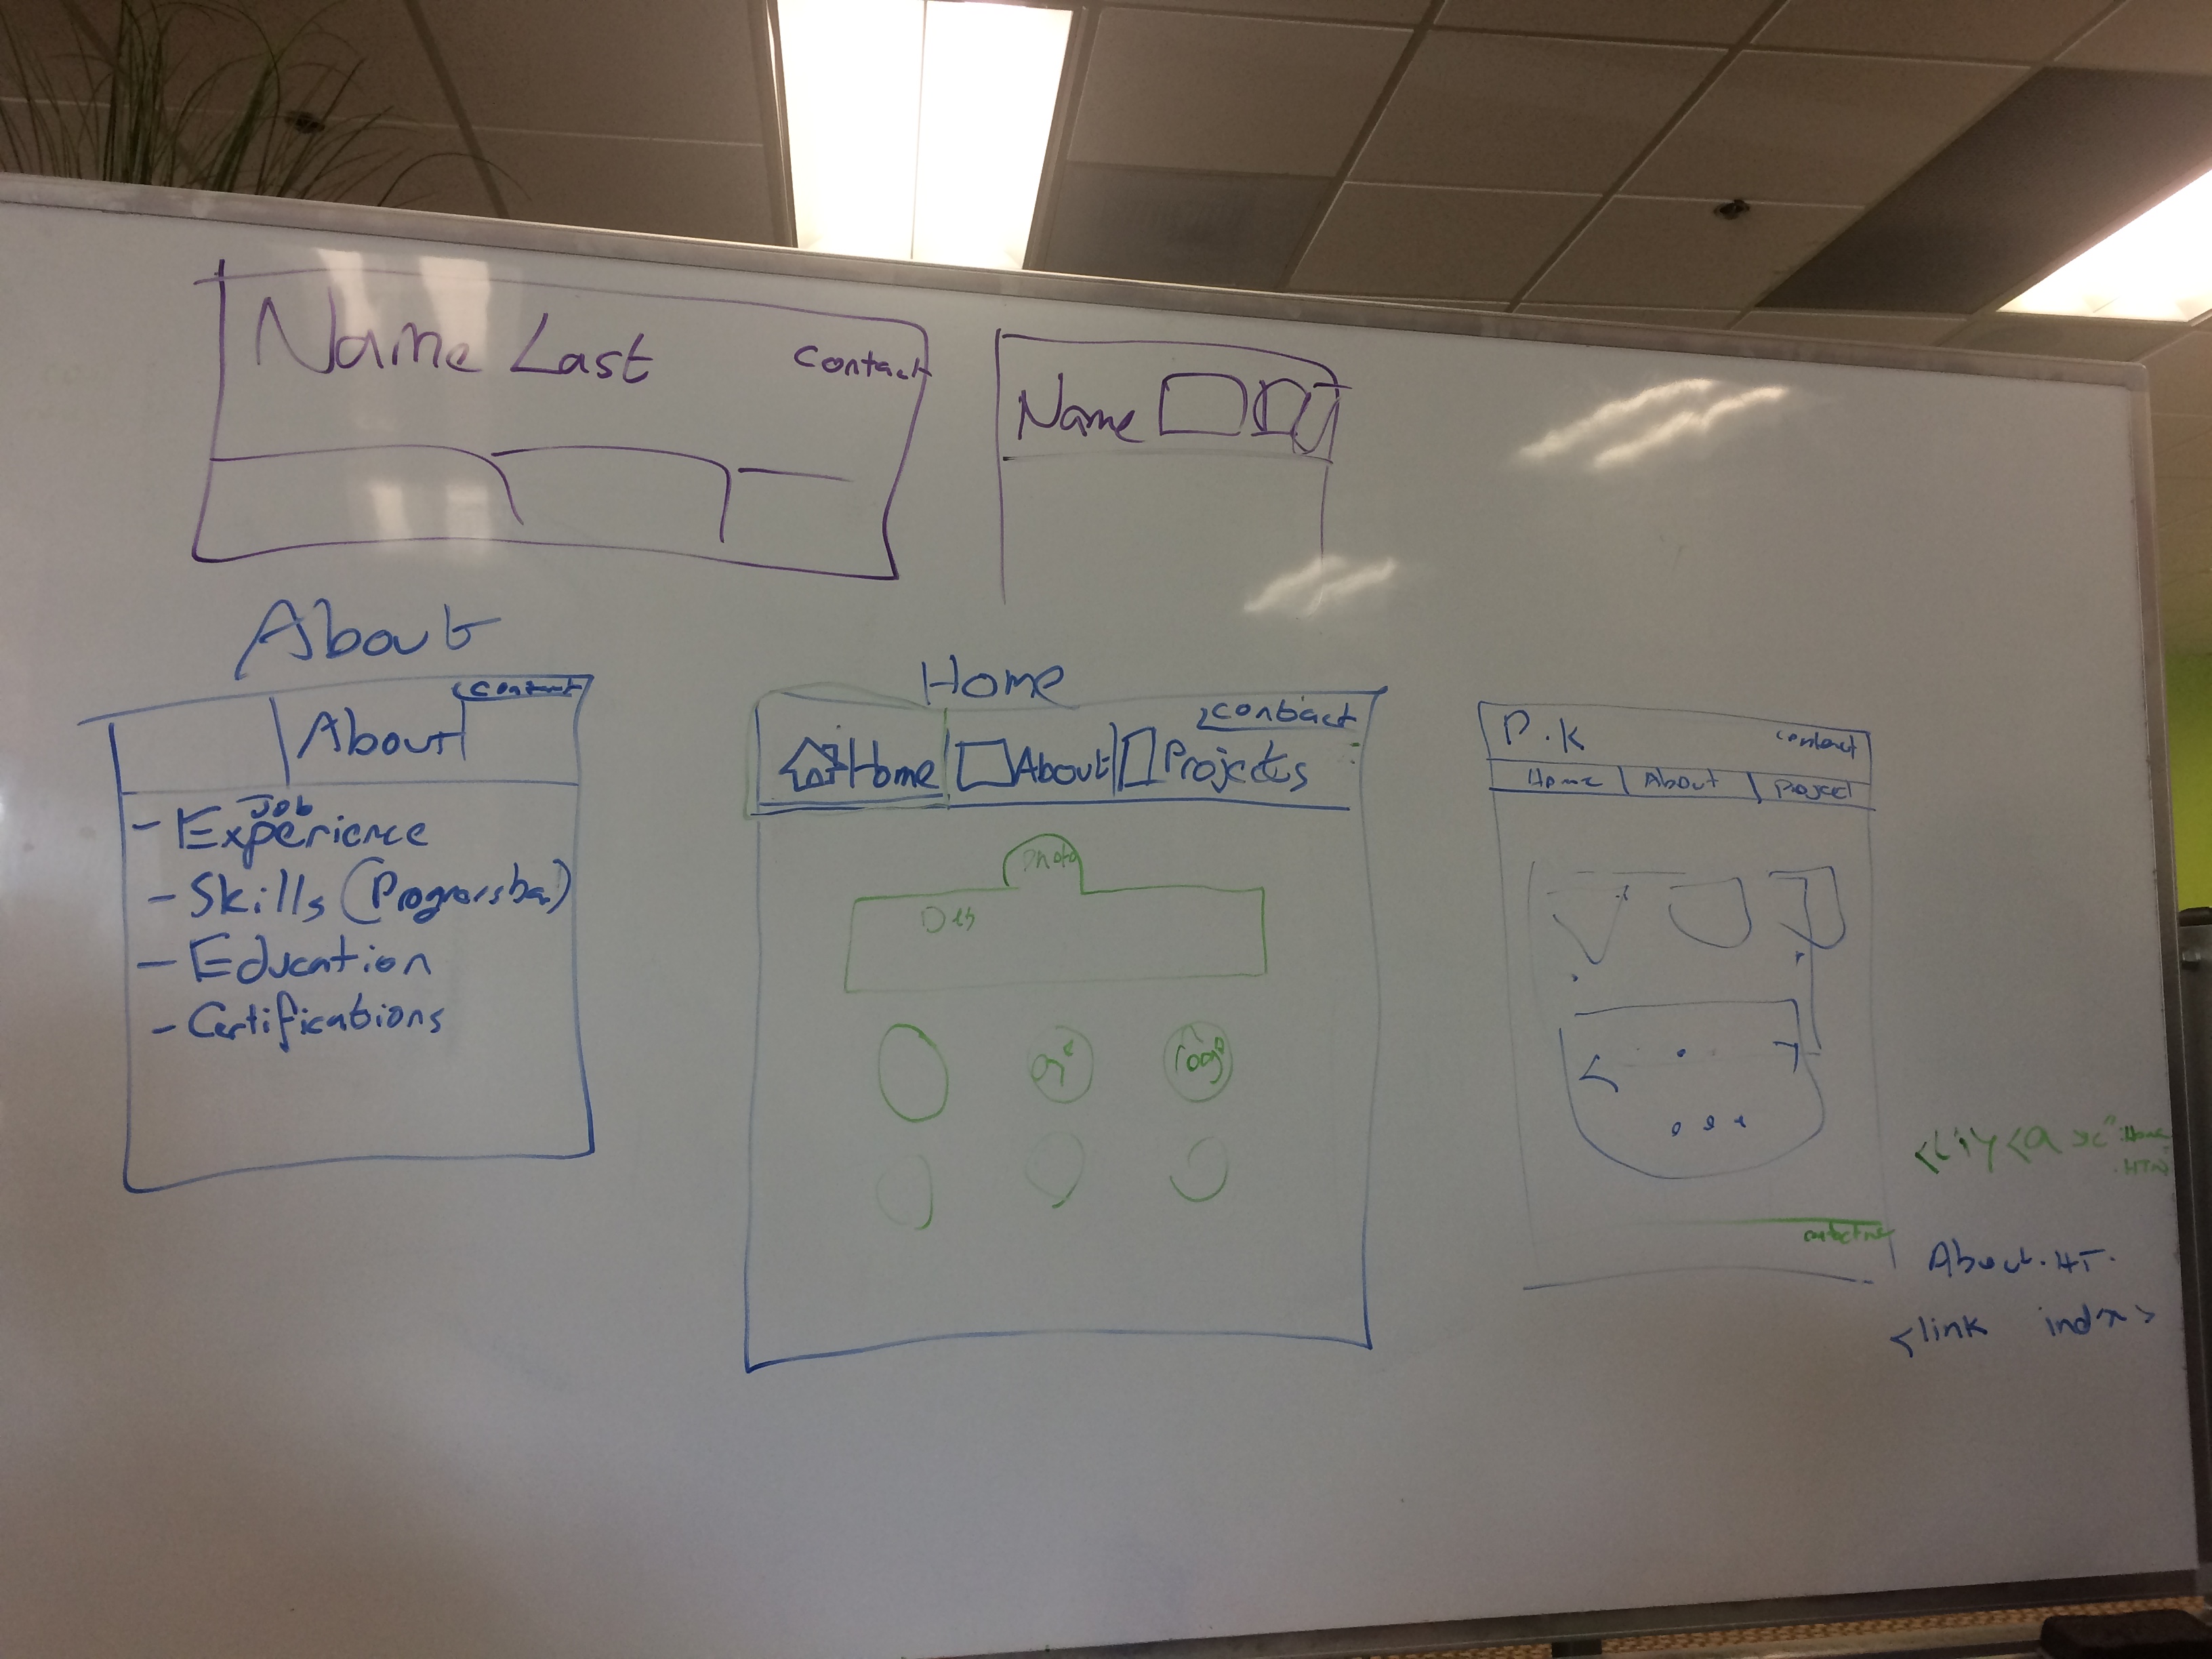 Name Last
contact
Name
About
contact
About
- Job Experience
- Skills (Progressba)
- Education
- Certifications
Home
contact
Home
About
Projects
photo
Des
logo
P.K
contact
Home | About | Project
About.HT.
<link